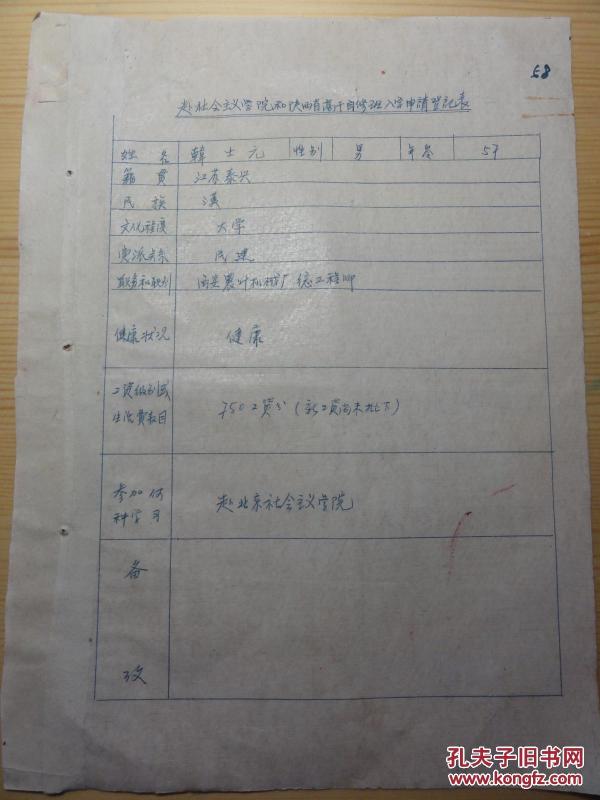 58
赴社会主义学院和陕西省高干自修班入学申請登記表
姓名 韓士元 性别 男 年令 57
籍貫 江苏泰兴
民族 漢
文化程度 大学
党派关系 民建
职务和职别 西安農业机械厂总工程师
健康状况 健康
工资级别或
生活費数目 750工资分（新工资尚未批下）
参加何
科学习 赴北京社会主义学院
备
攷
孔夫子旧书网
www.kongfz.com